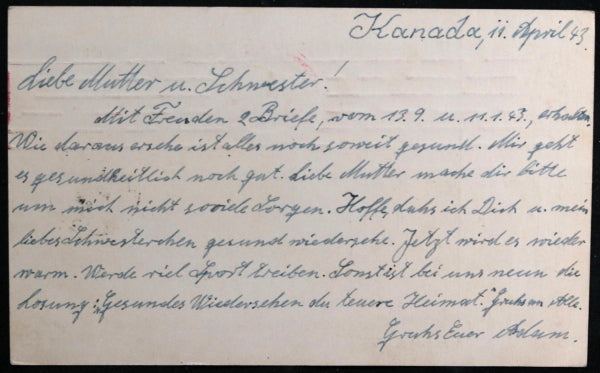 Kanada, 11. April 43.
Liebe Mutter u. Schwester!
Mit Freuden 2 Briefe, vom 13.9. u. 11.1.43., erhalten.
Wie daraus ersehe ist alles noch soweit gesund. Mir geht
es gesundheitlich noch gut. Liebe Mutter mache dir bitte
um mich nicht soviele Sorgen. Hoffe, dahs ich Dich u. mein
liebes Schwesterchen gesund wiedersehe. Jetzt wird es wieder
warm. Werde viel Sport treiben. Sonst ist bei uns neun die
Losung: "Gesundes Wiedersehen du teuere Heimat." Gruhs an Alle.
Gruhs Euer Adam.